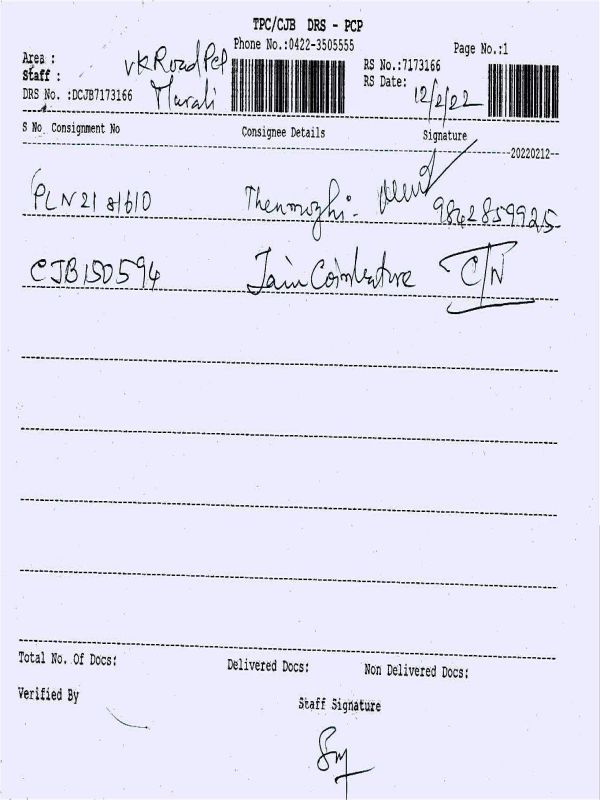 TPC/CJB DRS - PCP
Phone No.:0422-3505555
Page No.:1
Area : VKRoad Pcp
Staff : Murali
DRS No. :DCJB7173166
RS No.:7173166
RS Date: 12/2/22
S No Consignment No Consignee Details Signature
20220212
PLN2181610 Thenmozhi. 9842859925
CJB150594 Jain Coimbatore C/N
Total No. Of Docs: Delivered Docs: Non Delivered Docs:
Verified By
Staff Signature